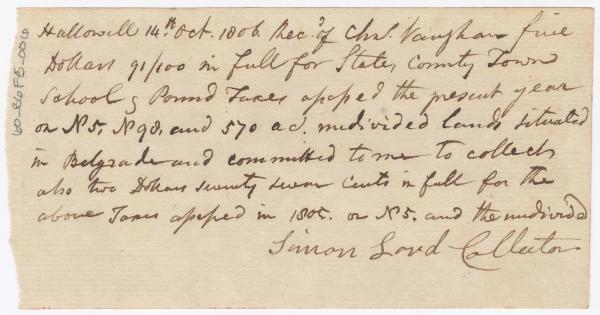 Hallowell 14th Oct. 1806. Rec.d of Chas. Vaughan five
Dollars 91/100 in full for State, County Town
School & Pound Taxes assessed the present year
on No 5, No 98, and 570 ac. undivided lands situated
in Belgrade and committed to me to collect
also two Dollars seventy seven Cents in full for the
above Taxes assessed in 1805. on No 5. and the undivided
Simon Lord Collector